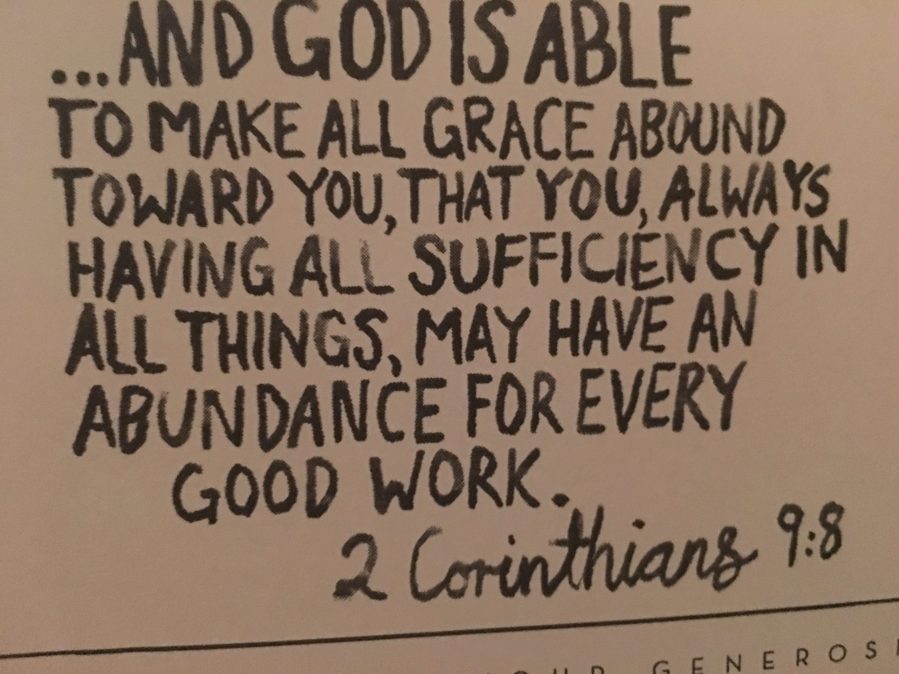 ...AND GOD IS ABLE
TO MAKE ALL GRACE ABOUND
TOWARD YOU, THAT YOU, ALWAYS
HAVING ALL SUFFICIENCY IN
ALL THINGS, MAY HAVE AN
ABUNDANCE FOR EVERY
GOOD WORK.
2 Corinthians 9:8